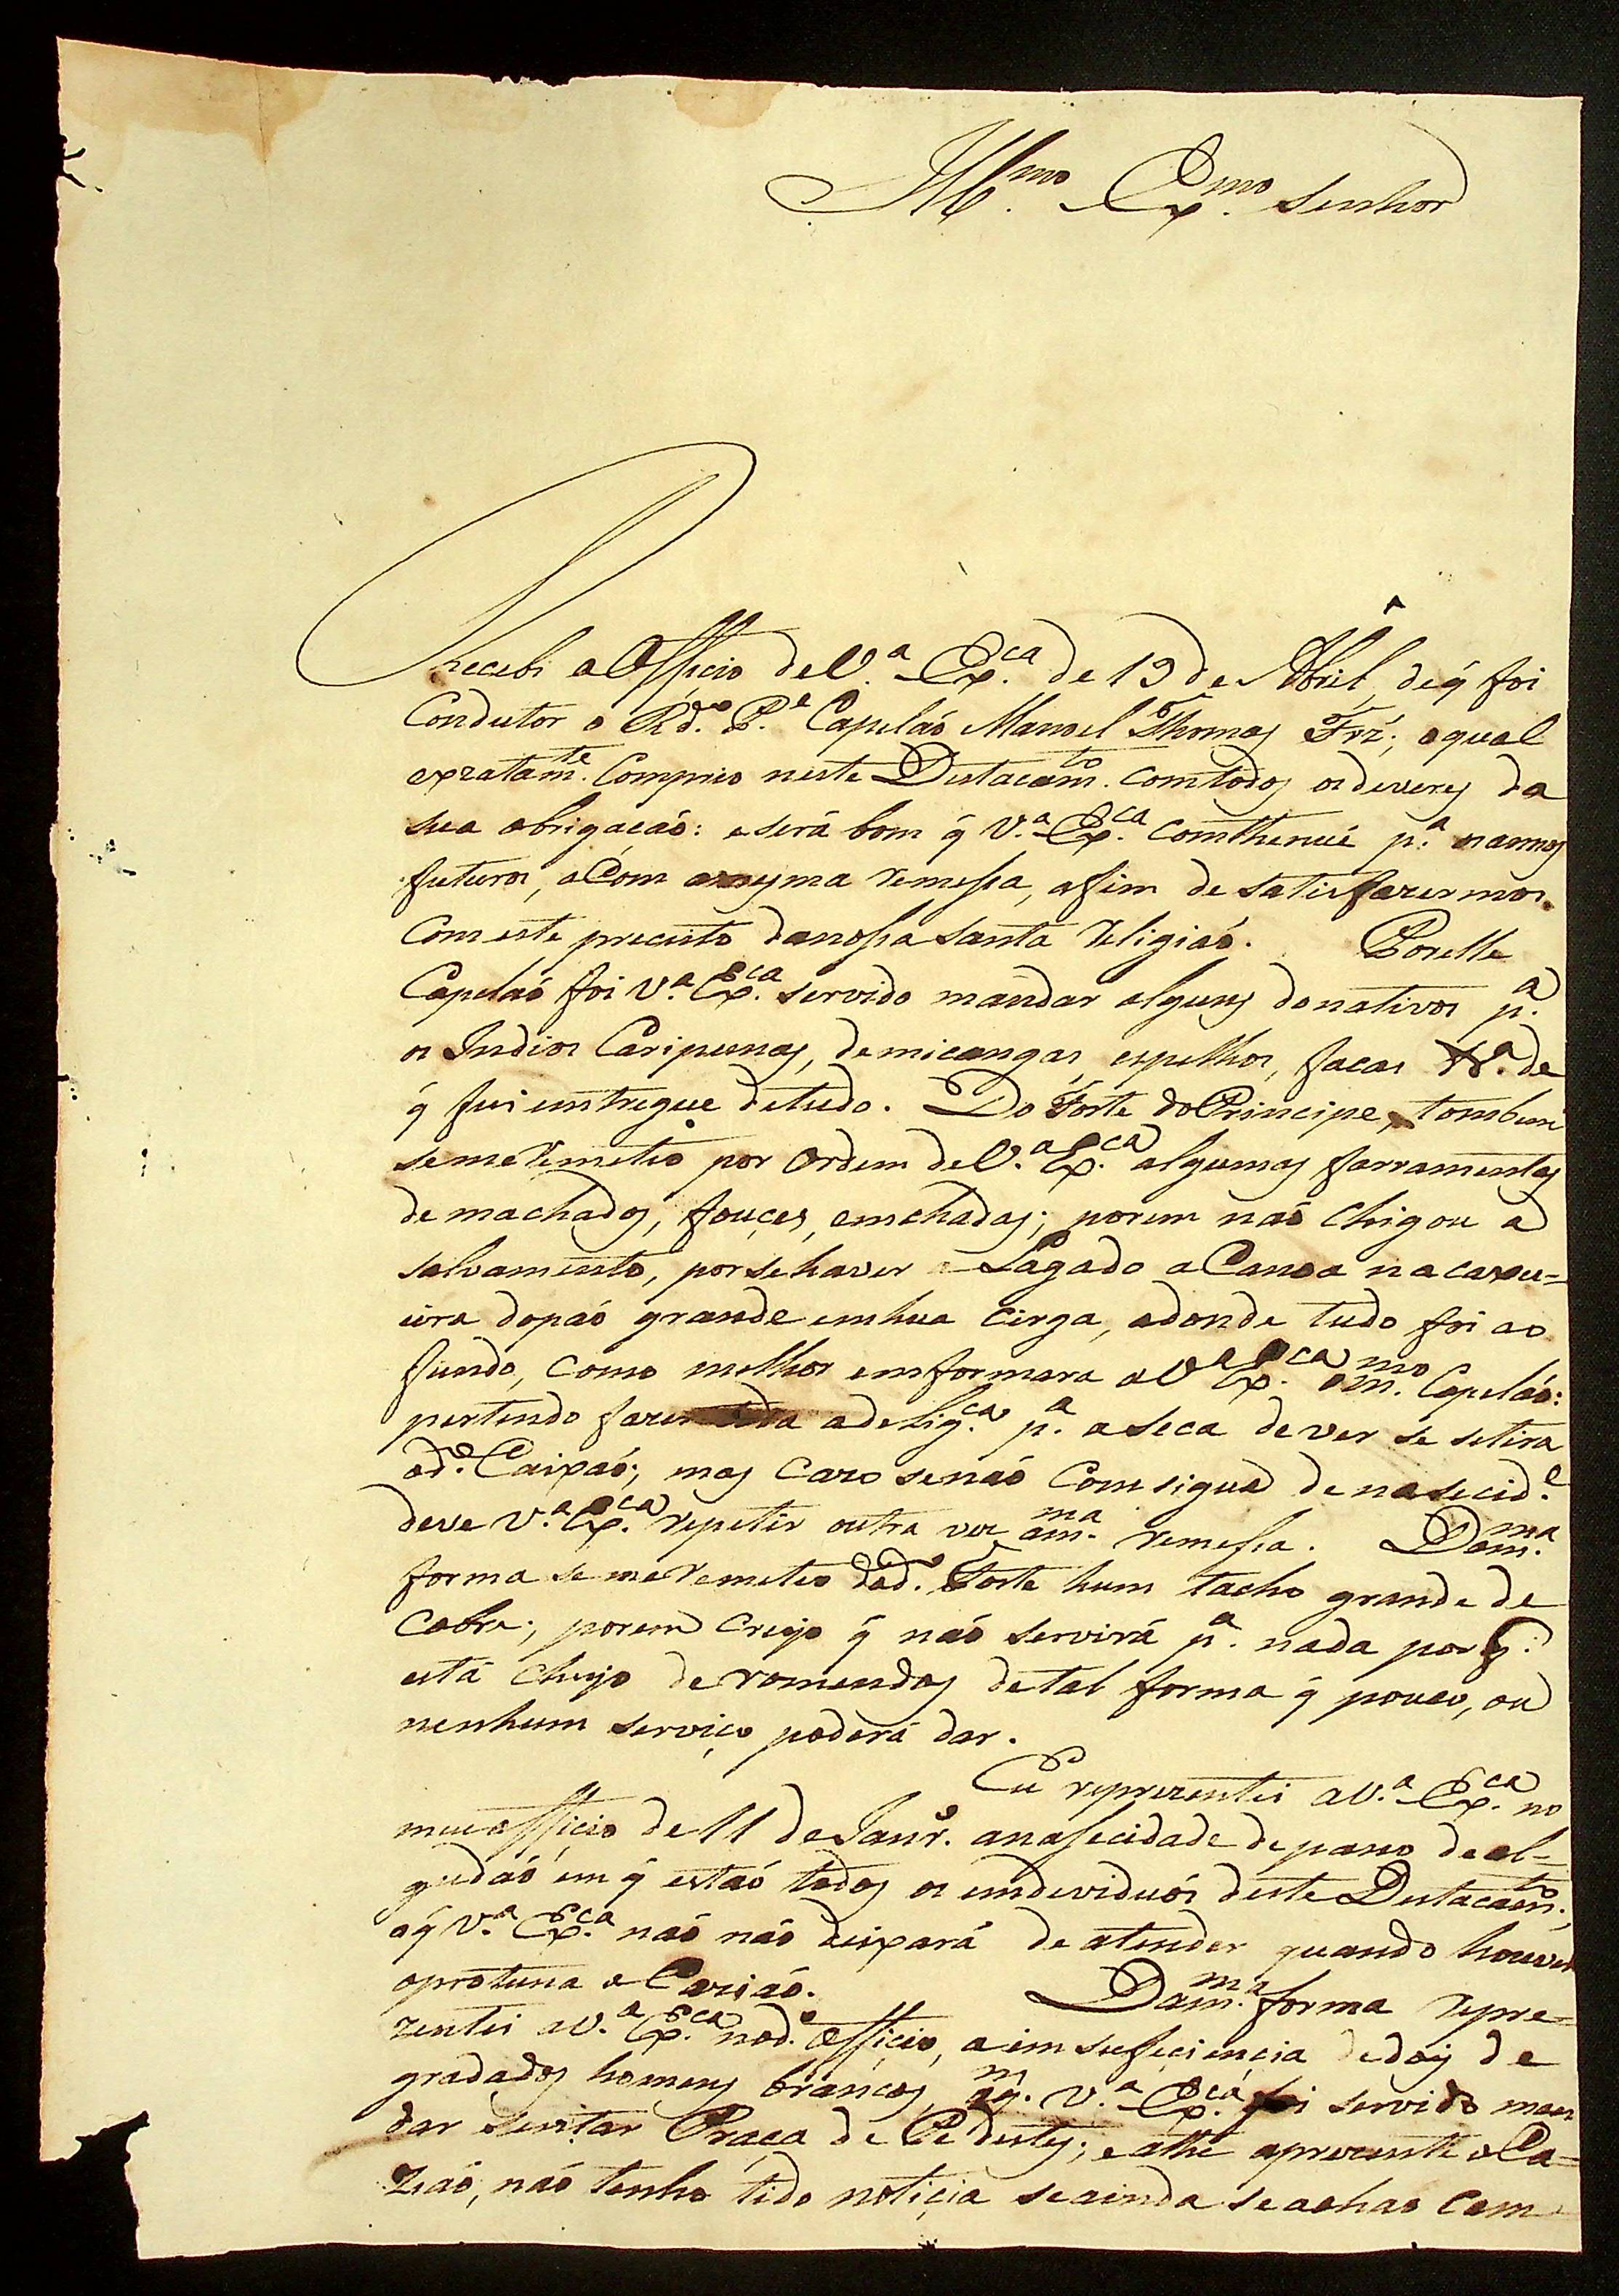 Ill.mo Ex.mo Senhor
Recebi o Officio de V.a Ex.ca de 19 de Abril, de q̃ foi
Condutor o R.do P.e Capelaõ Manoel Thomas Frz̃; o qual
exzatam.te Comprio neste Destacam.to com todos os deveres da
sua obrigaçaõ: e será bom q̃ V.a Ex.ca Comthenue p.a os annos
futuros, a Com a mesma remessa, afim de satisfazermos
Com este preceito da nossa Santa religiaõ. Por elle
Capelaõ foi V.a Ex.ca servido mandar alguns donativos p.a
os Indios Caripunas, de micangas, espelhos, facas &.a de
q̃ fui emtregue de tudo. Do Forte do Principe, tambem
se me remeteo por ordem de V.a Ex.ca algumas farramentas
de machados, fouces, emchadas; porem naõ chigou a
salvamento, por se haver a Lagado a Canoa na caxu=
eira do paõ grande em hua Cirga, adonde tudo foi ao
fundo, como melhor emformara a V.a Ex.ca o m.mo Capelaõ:
pertendo fazer toda a delig.ca p.a a seca de ver se se tira
o d.o Caixaõ; mas Cazo se naõ Comsigua de nasecid.e
deve V.a Ex.ca repetir outra vez a m.ma remessa. Da m.ma
forma se me remeteo do d.o Forte hum tacho grande de
Cobre; porem Creyo q̃ naõ servirá p.a nada por q̃:
está cheyo de romendos de tal forma q̃ pouco, ou
nenhum serviço poderá dar.
Eu reprezentei a V.a Ex.ca no
meu officio de 11 de Janr.o a nasecidade de pano de al=
gudaõ em q̃ estaõ todos os emdeviduos deste Destacam.to,
a q̃ V.a Ex.ca naõ naõ deixará de atender quando houver
oprotuna o Caziaõ. Da m.ma forma repre=
zentei a V.a Ex.ca no d.o officio, a imsuficiencia de dois de
gradados homens brancos, a q.m V.a Ex.ca foi servido man
dar sentar Praça de Pedestes; e athe aprezente o Ca=
ziaõ, naõ tenho tido noticia se ainda se achaõ Com